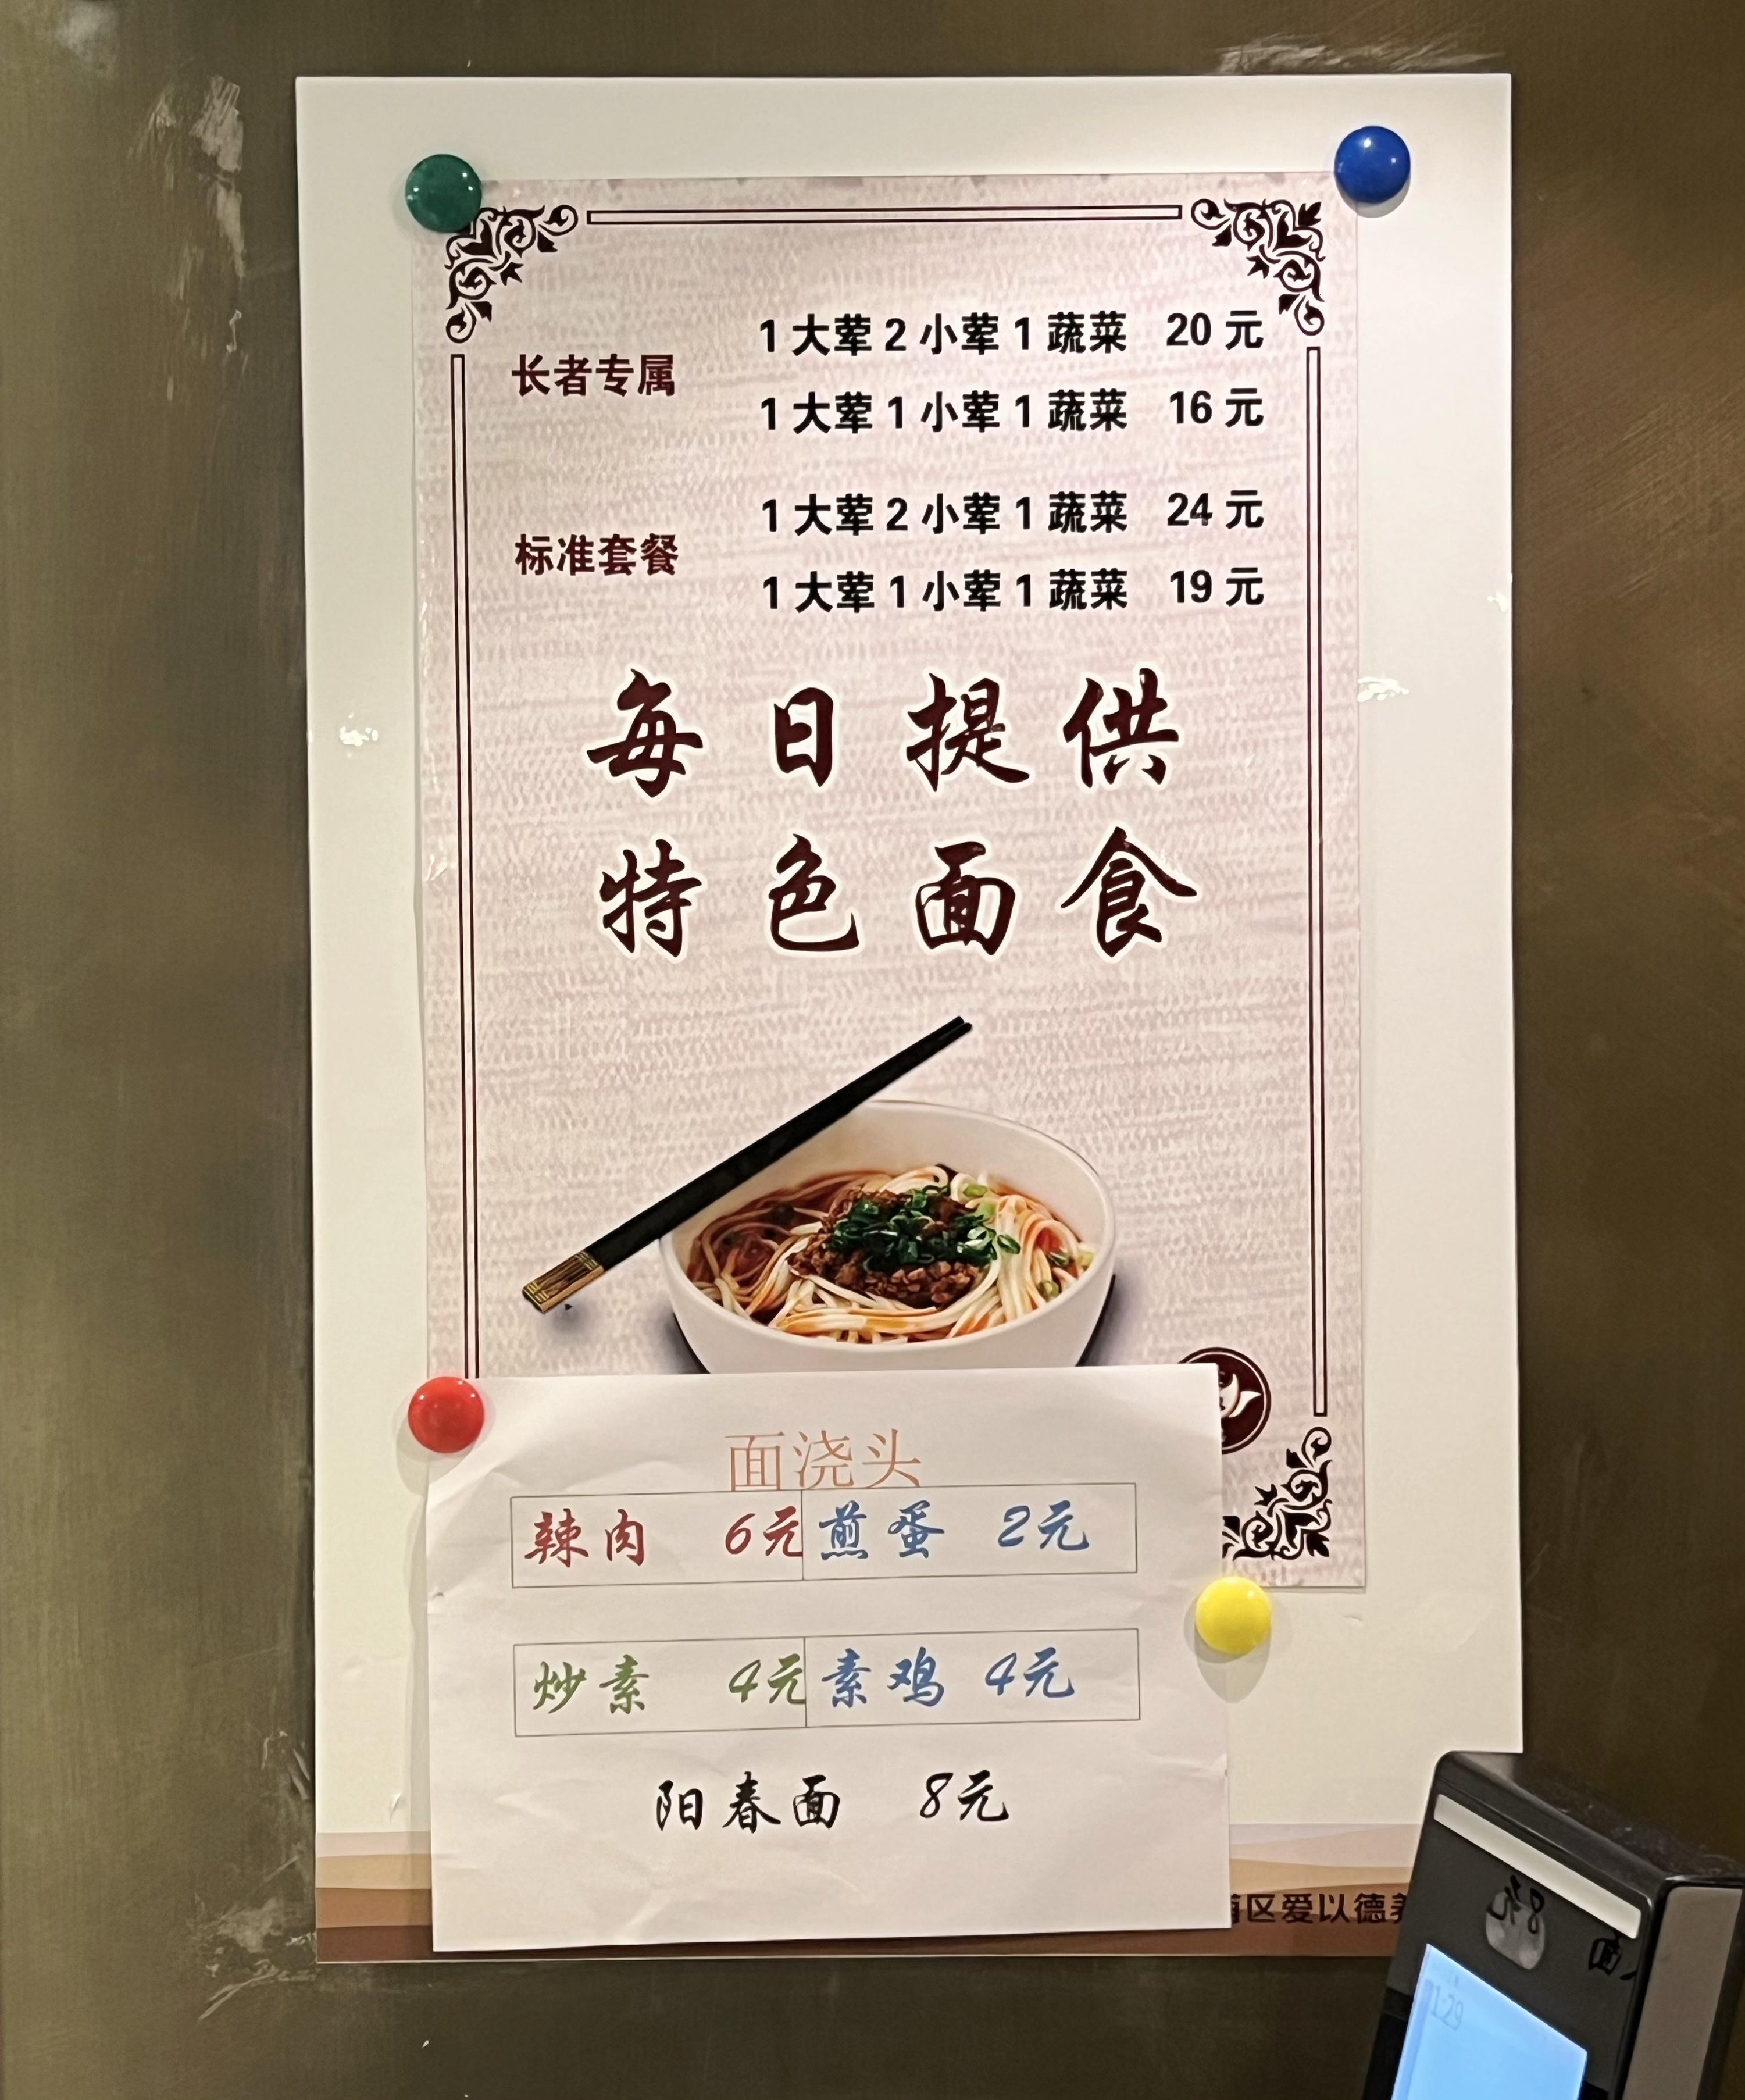 长者专属
1 大荤 2 小荤 1 蔬菜 20 元
1 大荤 1 小荤 1 蔬菜 16 元
标准套餐
1 大荤 2 小荤 1 蔬菜 24 元
1 大荤 1 小荤 1 蔬菜 19 元
每日提供
特色面食
面浇头
辣肉 6元 煎蛋 2元
炒素 4元 素鸡 4元
阳春面 8元
区爱以德